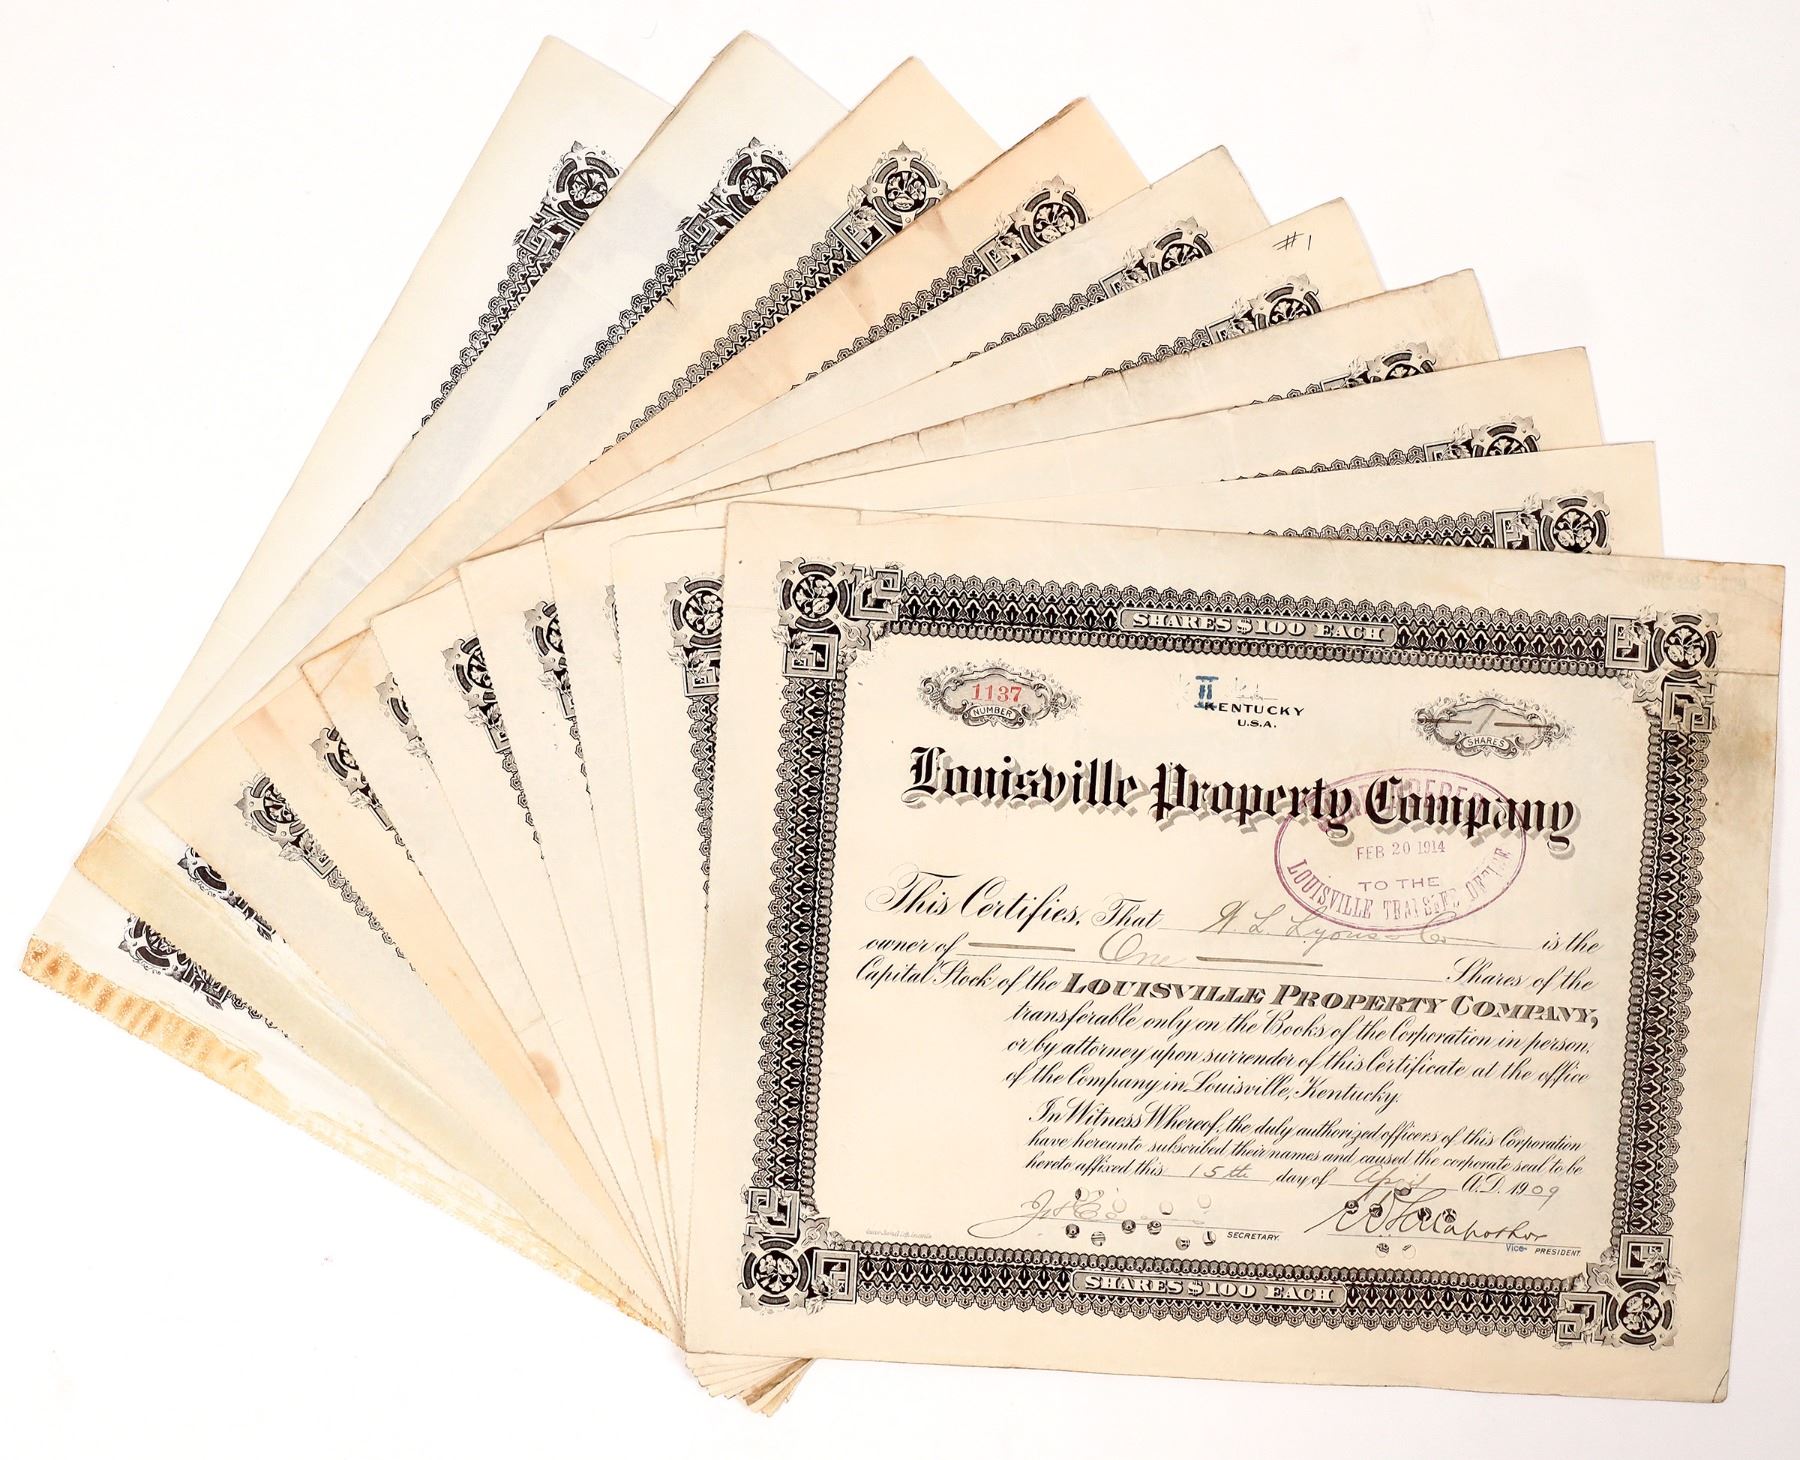 #1
SHARES $100 EACH
1137
NUMBER
KENTUCKY
U.S.A.
1
SHARES
Louisville Property Company
FEB 20 1914
TO THE
LOUISVILLE TRANSFER OFFICE
This Certifies, That W. L. Lyons & Co is the
owner of One Shares of the
Capital Stock of the LOUISVILLE PROPERTY COMPANY,
transferable only on the Books of the Corporation in person,
or by attorney upon surrender of this Certificate at the office
of the Company in Louisville, Kentucky.
In Witness Whereof, the duly authorized officers of this Corporation
have hereunto subscribed their names and caused the corporate seal to be
hereto affixed this 15th day of April A.D. 1909
SECRETARY.
Vice- PRESIDENT.
SHARES $100 EACH